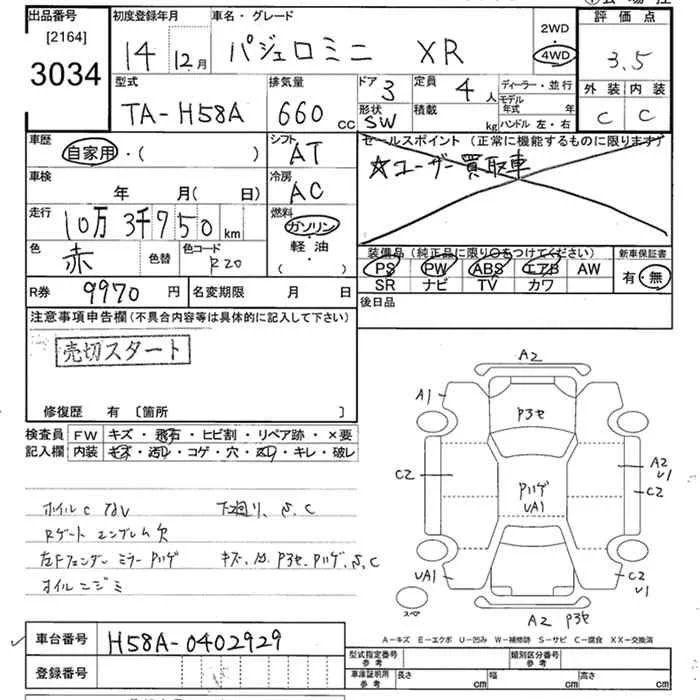 出品番号
[2164]
3034
初度登録年月
14 12月
車名・グレード
パジェロミニ XR
2WD
4WD
評価点
3.5
外装 内装
C C
型式
TA-H58A
排気量
660 cc
ドア 3
形状 SW
定員 4 人
積載 kg
ディーラー・並行
モデル年式 年
ハンドル 左・右
車歴
自家用・( )
シフト
AT
車検
年 月( 日)
冷房
AC
走行
10万3千750 km
燃料
ガソリン
軽・油
( )
色
赤
色替
色コード
R20
セールスポイント (正常に機能するものに限ります)
☆ユーザー買取車
装備品 (純正品に限り○をつけてください)
PS PW ABS エアB AW
SR ナビ TV カワ
新車保証書
有・無
R券 9970 円
名変期限 月 日
後日品
注意事項申告欄(不具合内容等は具体的に記入して下さい)
売切スタート
修復歴 有 〔箇所 〕
検査員記入欄
FW キズ・飛石・ヒビ割・リペア跡・×要
内装 キズ・汚レ・コゲ・穴・スレ・キレ・破レ
ホイルC
下廻り、S、C
Rゲートエンブレム欠
左Fフェンダーミラー Pハゲ
オイルニジミ
A2
A1
P3セ
C2
Pハゲ
UA1
A2
U1
C2
UA1
C2
U1
スペア
A2 P3セ
A-キズ E-エクボ U-凹み W-補修跡 S-サビ C-腐食 XX-交換済
車台番号 H58A-0402929
登録番号
型式指定番号 参考
類別区分番号 参考
車庫証明用 参考
長さ cm
幅 cm
高さ cm